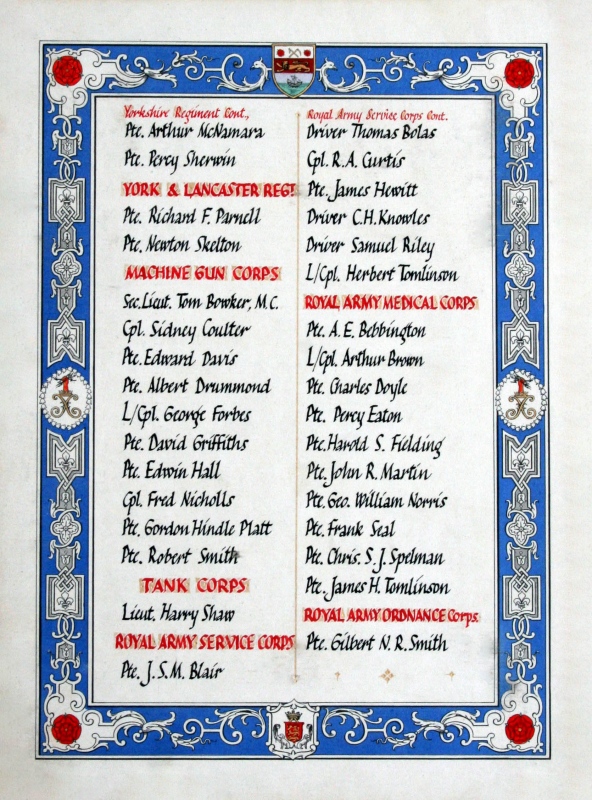 Yorkshire Regiment Cont.,
Pte. Arthur McNamara
Pte. Percy Sherwin
YORK & LANCASTER REGT.
Pte. Richard F. Parnell
Pte. Newton Skelton
MACHINE GUN CORPS
Sec. Lieut. Tom Bowker, M.C.
Cpl. Sidney Coulter
Pte. Edward Davis
Pte. Albert Drummond
L/Cpl. George Forbes
Pte. David Griffiths
Pte. Edwin Hall
Cpl. Fred Nicholls
Pte. Gordon Hindle Platt
Pte. Robert Smith
TANK CORPS
Lieut. Harry Shaw
ROYAL ARMY SERVICE CORPS
Pte. J.S.M. Blair
Royal Army Service Corps Cont.
Driver Thomas Bolas
Cpl. R.A. Curtis
Pte. James Hewitt
Driver C.H. Knowles
Driver Samuel Riley
L/Cpl. Herbert Tomlinson
ROYAL ARMY MEDICAL CORPS
Pte. A.E. Bebbington
L/Cpl. Arthur Brown
Pte. Charles Doyle
Pte. Percy Eaton
Pte. Harold S. Fielding
Pte. John R. Martin
Pte. Geo. William Norris
Pte. Frank Seal
Pte. Chris. S.J. Spelman
Pte. James H. Tomlinson
ROYAL ARMY ORDNANCE Corps
Pte. Gilbert N.R. Smith